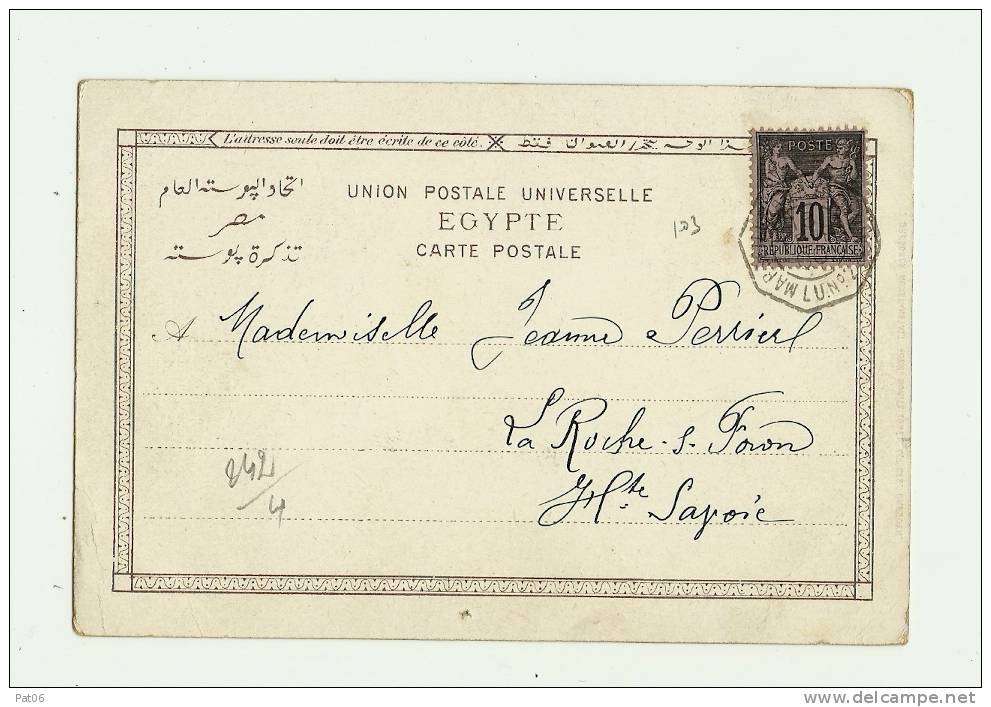 L'adresse seule doit être écrite de ce côté.
هذا الوجه محرر العنوان فقط
اتحاد البوسته العام
مصر
تذكرة بوسته
UNION POSTALE UNIVERSELLE
EGYPTE
CARTE POSTALE
POSTE
10
REPUBLIQUE FRANÇAISE
MAR
LU.N
103
A Mademoiselle Jeanne Perrier
La Roche s. Foron
Hte Savoie
242/4
Pat06
www.delcampe.net